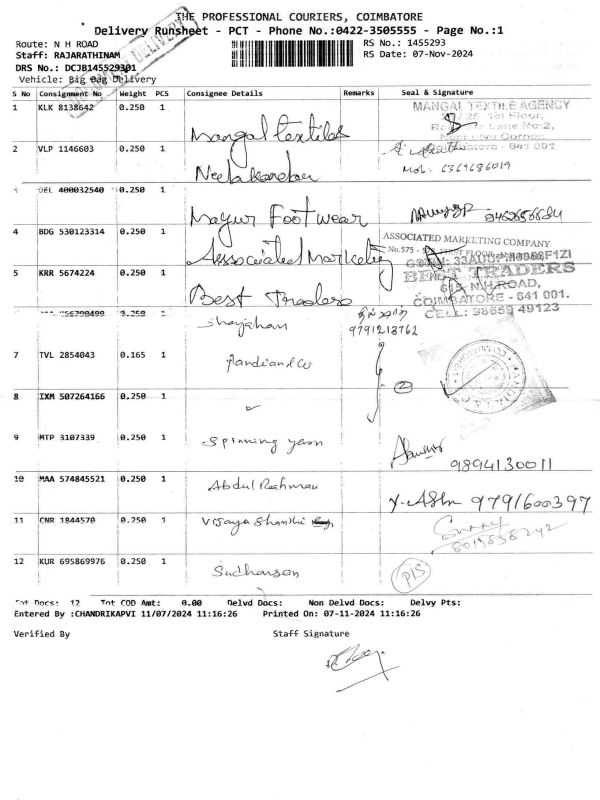 THE PROFESSIONAL COURIERS, COIMBATORE
Delivery Runsheet - PCT - Phone No.:0422-3505555 - Page No.:1
Route: N H ROAD
RS No.: 1455293
Staff: RAJARATHINAM
RS Date: 07-Nov-2024
DRS No.: DCJB145529301
Vehicle: Big Bag Delivery
S No Consignment No Weight PCS Consignee Details Remarks Seal & Signature
1 KLK 8138642 0.250 1 Mangal textiles
MANGAL TEXTILE AGENCY
1st Floor,
2 VLP 1146603 0.250 1 Neelakandan
641 001
Mob. 6369686019
DEL 400032540 0.250 1 Mayur Footwear
4 BDG 530123314 0.250 1 Associated Marketing
ASSOCIATED MARKETING COMPANY
5 KRR 5674224 0.250 1 Best Traders
BEST TRADERS
N.H.ROAD,
COIMBATORE - 641 001.
CELL: 98659 49123
1 Shajahan 9791213762
7 TVL 2854043 0.165 1 Pandi and Co
2
8 IXM 507264166 0.250 1 ✓
9 MTP 3107339 0.250 1 Spinning yarn 9894130011
10 MAA 574845521 0.250 1 Abdul Rahman 9791600397
11 CNR 1844570 0.250 1 Vijaya Shanthi
12 KUR 695869976 0.250 1 Sudharson P15
Tot Docs: 12 Tot COD Amt: 0.00 Delvd Docs: Non Delvd Docs: Delvy Pts:
Entered By :CHANDRIKAPVI 11/07/2024 11:16:26 Printed On: 07-11-2024 11:16:26
Verified By Staff Signature